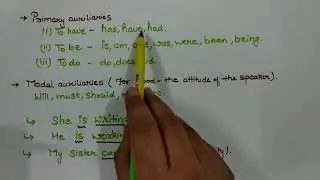 → Primary auxiliaries
(i) To have - has, have, had.
(ii) To be - is, am, was, were, been, being.
(iii) To do - do, does, did.
→ Modal auxiliaries ( For - the attitude of the speaker).
Will, must, should, etc.
→ She is writing
→ He is working
→ My sister